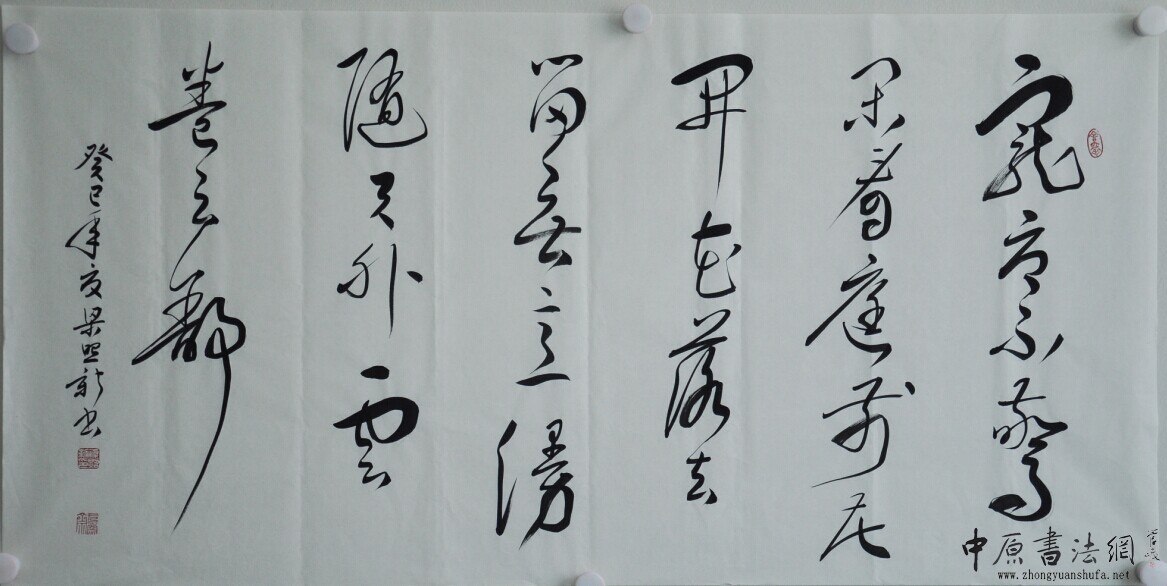 寵辱不驚
闲看庭前花
開花落去
留無意漫
随天外雲
卷云舒
癸巳年夏梁照新书
中原書法網
www.zhongyuanshufa.net